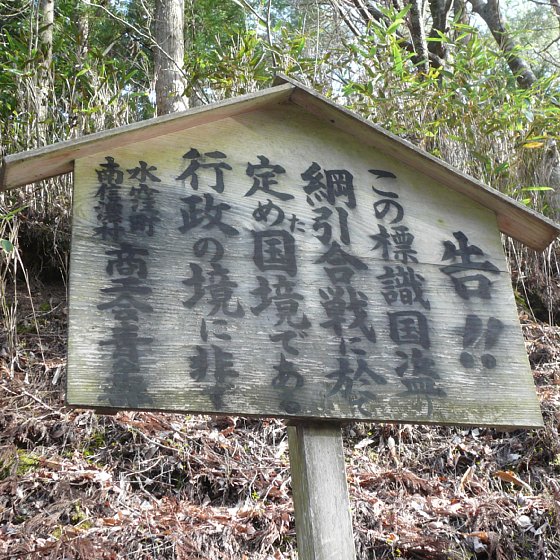 告!!
この標識国盗
綱引合戦に於て
定めた国境である
行政の境に非ず
水窪町
南信濃村
商工会青年部